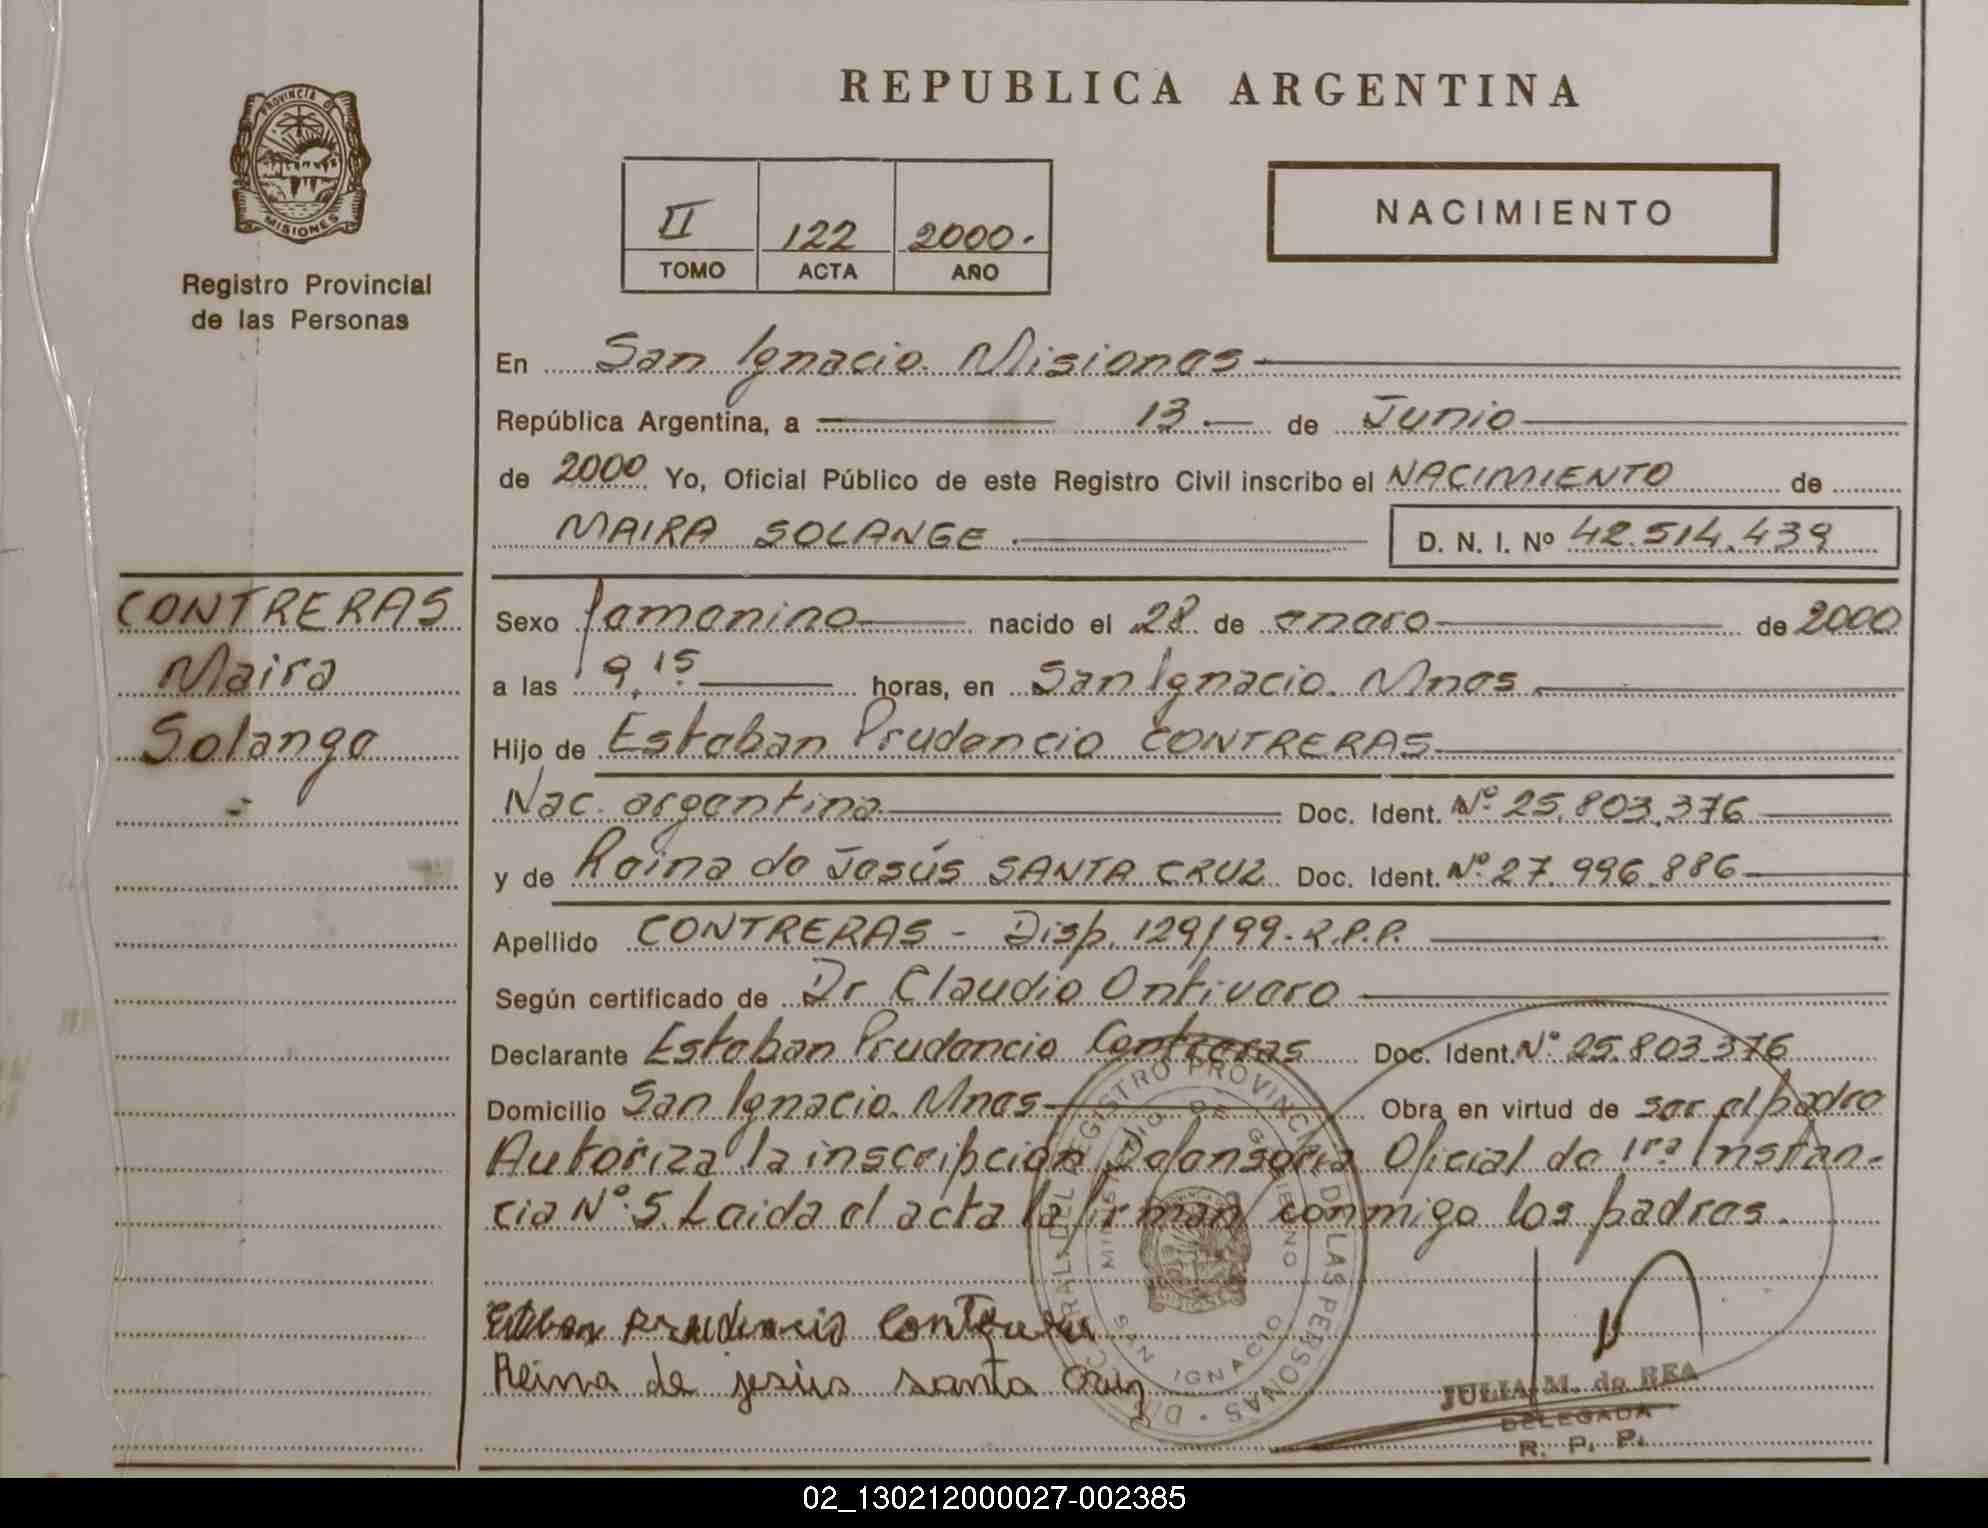 PROVINCIA D
MISIONES
Registro Provincial
de las Personas
REPUBLICA ARGENTINA
II 122 2000.
TOMO ACTA AÑO
NACIMIENTO
En San Ignacio. Misiones
República Argentina, a 13 de Junio
de 2000 Yo, Oficial Público de este Registro Civil inscribo el NACIMIENTO de
MAIRA SOLANGE. D. N. I. Nº 42.514.439
CONTRERAS
Maira
Solange
Sexo femenino nacido el 28 de enero de 2000
a las 9,15 horas, en San Ignacio. Mnes.
Hijo de Esteban Prudencio CONTRERAS
Nac. argentina Doc. Ident. Nº 25.803.376
y de Reina de Jesús SANTA CRUZ Doc. Ident. Nº 27.996.886
Apellido CONTRERAS - Disp. 129/99. R.P.P.
Según certificado de Dr Claudio Ontivero
Declarante Esteban Prudencio Contreras Doc. Ident. Nº 25.803.376
Domicilio San Ignacio. Mnes Obra en virtud de ser el padre
Autoriza la inscripción Defensoría Oficial de 1ra Instan-
cia Nº 5. Leida el acta la firman conmigo los padres.
Esteban Prudencio Contreras
Reina de jesús santa Cruz
DIRECC. GRAL. DEL REGISTRO PROVINCIAL DE LAS PERSONAS
MINISTERIO DE GOBIERNO
SAN IGNACIO
JULIA M. de REA
DELEGADA
R. P. P.
02_130212000027-002385